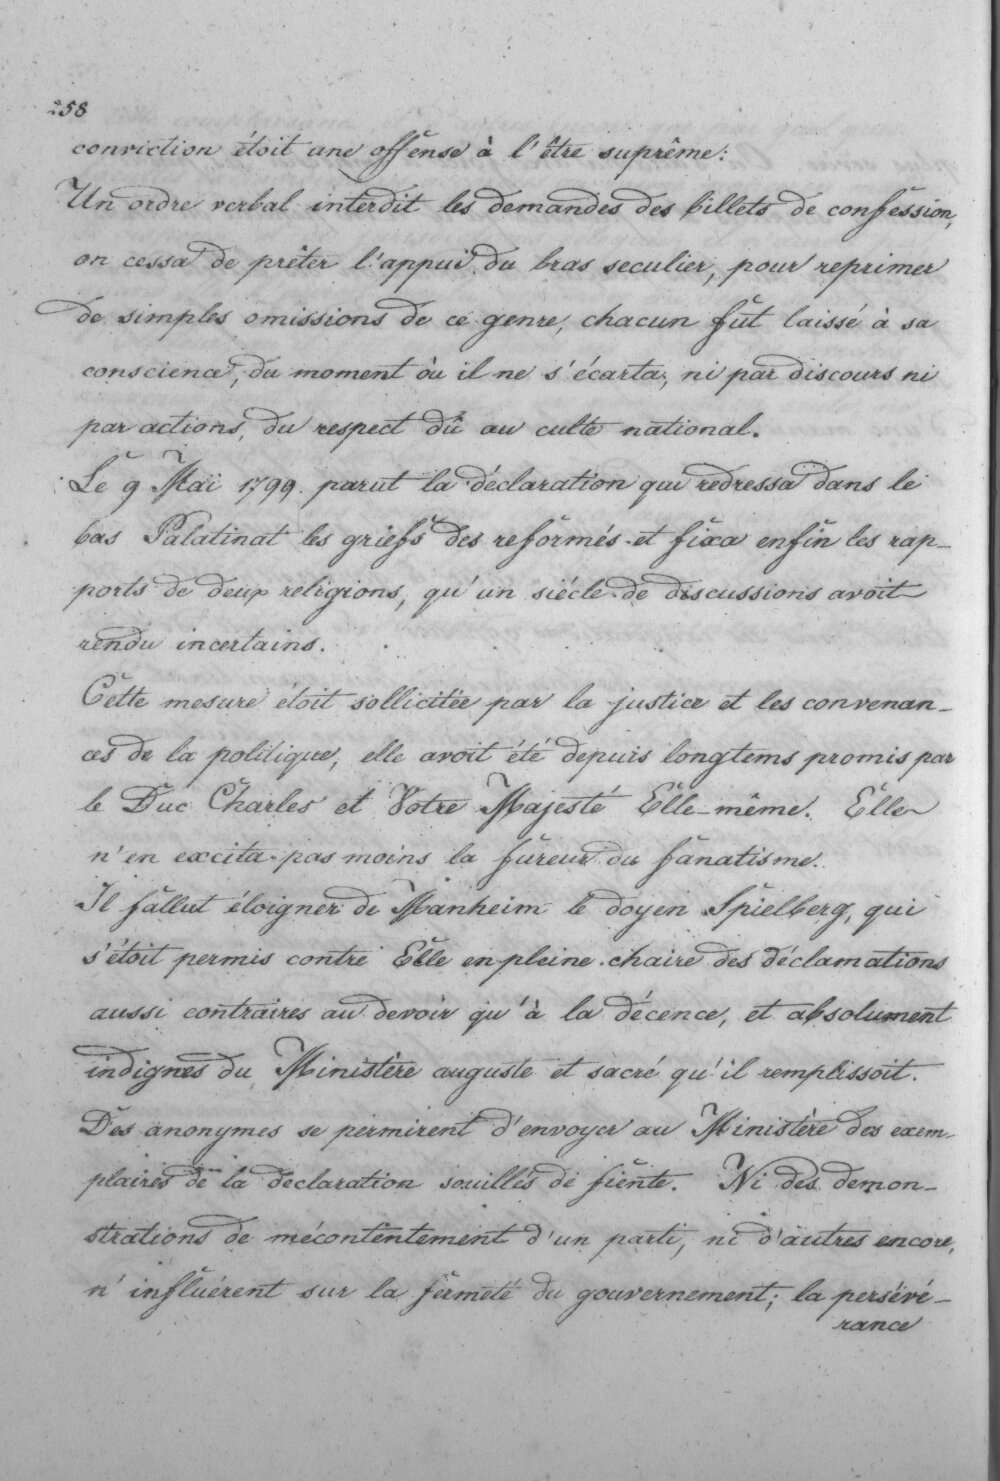 258
conviction étoit une offense à l'être suprême:
Un ordre verbal interdit les demandes des billets de confession,
on cessa de prêter l'appui du bras seculier, pour reprimer
de simples omissions de ce genre, chacun fut laissé à sa
conscience, du moment où il ne s'écarta, ni par discours ni
par actions, du respect dû au culte national.
Le 9 Mai 1799. parut la déclaration qui redressa dans le
bas Palatinat les griefs des reformés et fixa enfin les rap-
ports de deux religions, qu'un siécle de discussions avoit
rendu incertains.
Cette mesure étoit sollicitée par la justice et les convenan-
ces de la politique, elle avoit été depuis longtems promis par
le Duc Charles et Votre Majesté Elle-même. Elle
n'en excita pas moins la fureur du fanatisme.
Il fallut éloigner de Manheim le doyen Spielberg, qui
s'étoit permis contre Elle en pleine chaire des déclamations
aussi contraires au devoir qu'à la décence, et absolument
indignes du Ministère auguste et sacré qu'il remplissoit.
Des anonymes se permirent d'envoyer au Ministère des exem-
plaires de la declaration souillés de fiente. Ni des demon-
strations de mécontentement d'un parti, ni d'autres encore,
n'influérent sur la fermeté du gouvernement; la persévé-
rance